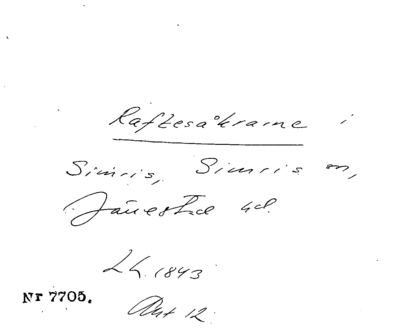 Raftesåkrarne i
Simris, Simris sn,
Järrestad hd.
L.h. 1843
Akt 12
Nr 7705.